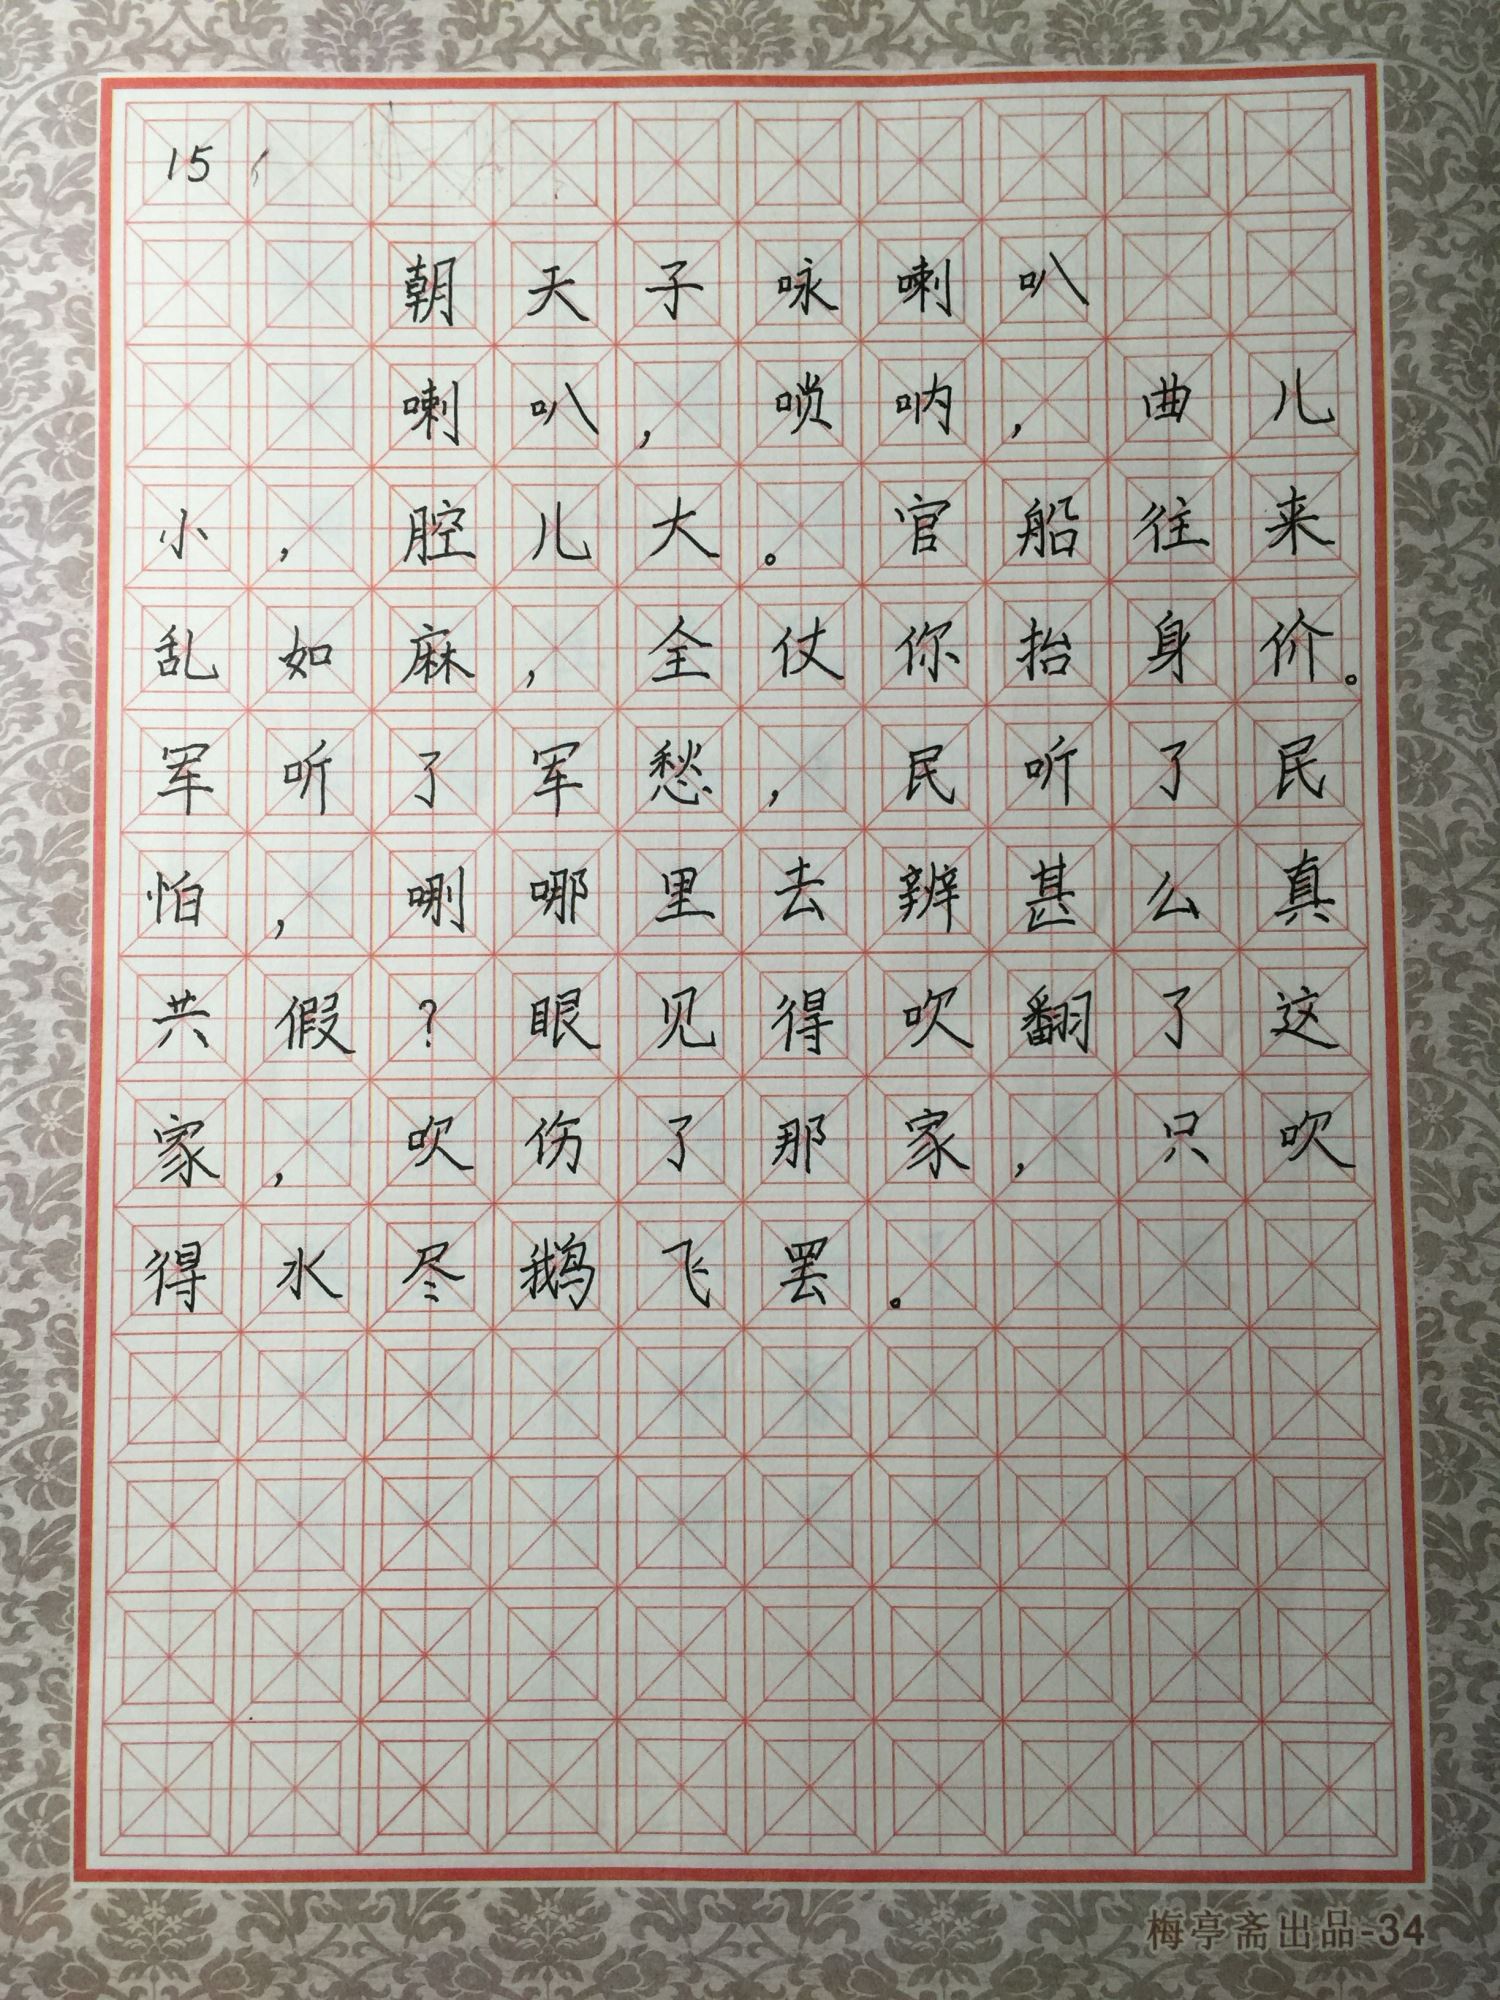 15
朝天子咏喇叭
喇叭，唢呐，曲儿
小，腔儿大。官船往来
乱如麻，全仗你抬身价。
军听了军愁，民听了民
怕，哪里去辨甚么真
共假？眼见得吹翻了这
家，吹伤了那家，只吹
得水尽鹅飞罢。
梅亭斋出品-34